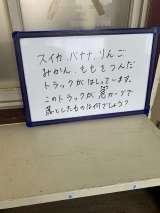 スイカ、バナナ、りんご
みかん、ももをつんだ
トラックがはしっています。
このトラックが急カーブで
落としたものは何でしょう?